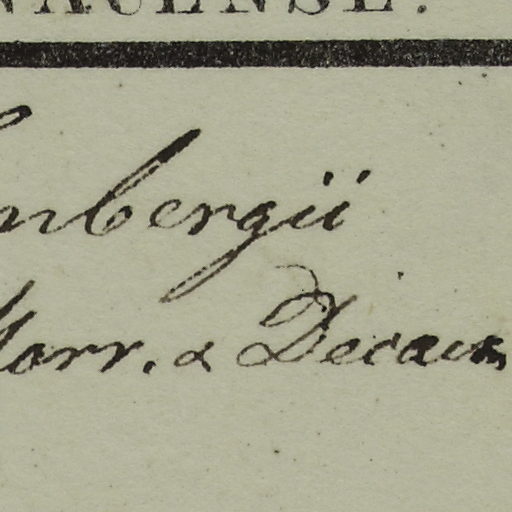 NAUENSE.
nbergii
Harr. & Decaisn